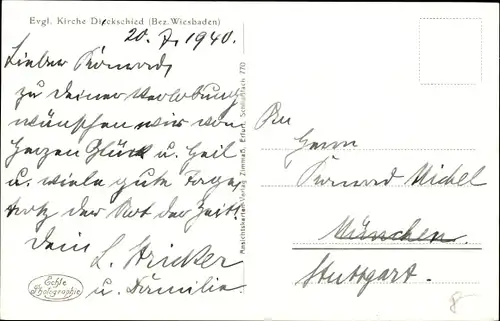 Evgl. Kirche Dickschied (Bez. Wiesbaden)
20. 7. 1940.
Lieber
zu Deiner Verlobung
wünschen wir von
Herzen Glück u. Heil
u. viele gute Tage,
trotz der Not der Zeit!
Dein L. Stricker
u. Familie.
Echte
Photographie
Ansichtskarten-Verlag Zimmaß, Erfurt, Schließfach 770
An
Herrn
Michel
München
Stuttgart.
8